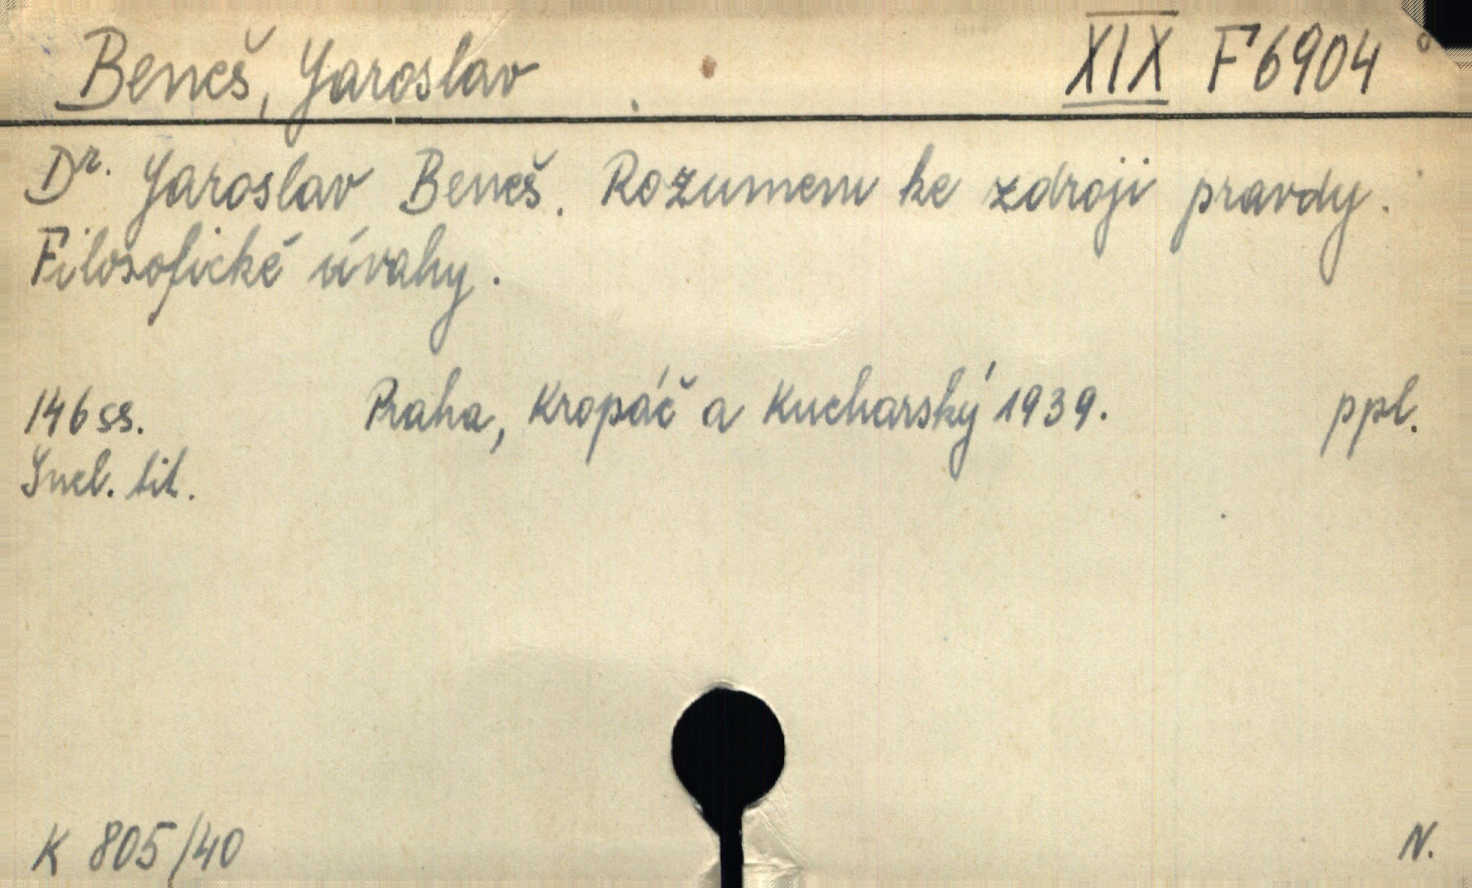 Beneš, Jaroslav XIX F 6904
Dr. Jaroslav Beneš. Rozumem ke zdroji pravdy.
Filosofické úvahy.
146 ss. Praha, Kropáč a Kucharský 1939. ppl.
Incl. tit.
K 805/40 N.